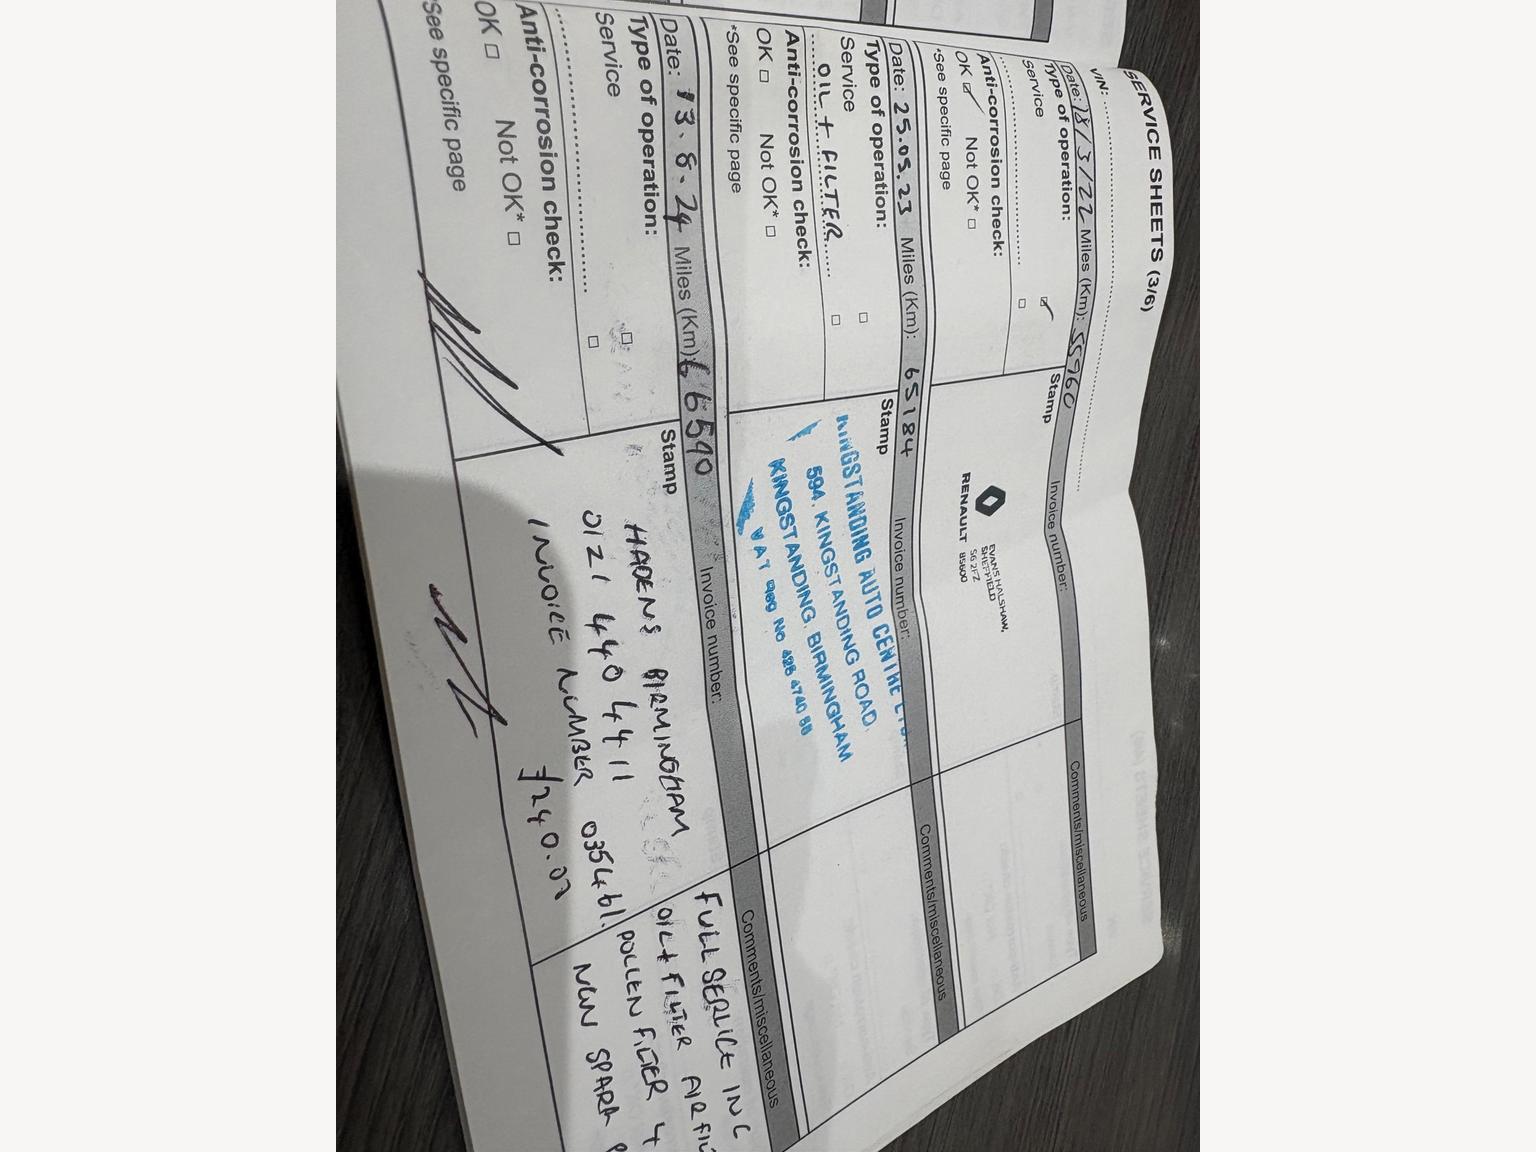 SERVICE SHEETS (3/6)
VIN:
Date: 18/3/22 Miles (Km): 55960 Invoice number: Comments/miscellaneous
Type of operation: Stamp
Service
Anti-corrosion check:
OK Not OK*
*See specific page
RENAULT
EVANS HALSHAW,
SHEFFIELD
S6 2FZ
85600
Date: 25.05.23 Miles (Km): 65184 Invoice number: Comments/miscellaneous
Type of operation: Stamp
Service
OIL + FILTER
Anti-corrosion check:
OK Not OK*
*See specific page
KINGSTANDING AUTO CENTRE LTD.
594, KINGSTANDING ROAD,
KINGSTANDING, BIRMINGHAM
VAT REG No 426 4740 88
Date: 13.8.24 Miles (Km) 66590 Invoice number: Comments/miscellaneous
Type of operation: Stamp
Service
Anti-corrosion check:
OK Not OK*
*See specific page
HADENS BIRMINGHAM
0121 440 4411
INVOICE NUMBER 035461.
£240.00
FULL SERVICE INC
OIL + FILTER AIR FIL
POLLEN FILTER 4
NEW SPARK P